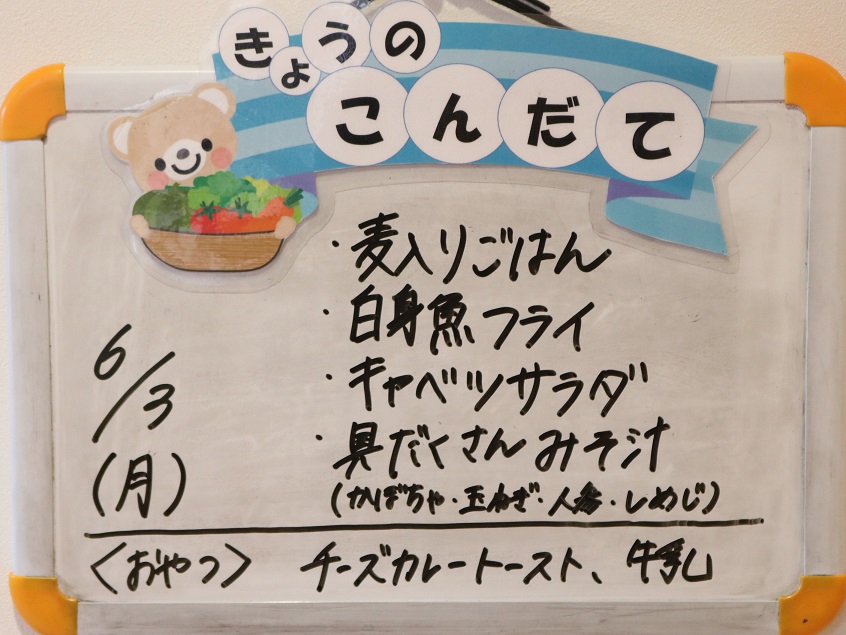 きょうの
こんだて
・麦入りごはん
・白身魚フライ
・キャベツサラダ
・具だくさんみそ汁
(かぼちゃ・玉ねぎ・人参・しめじ)
6/3
(月)
〈おやつ〉 チーズカレートースト、牛乳